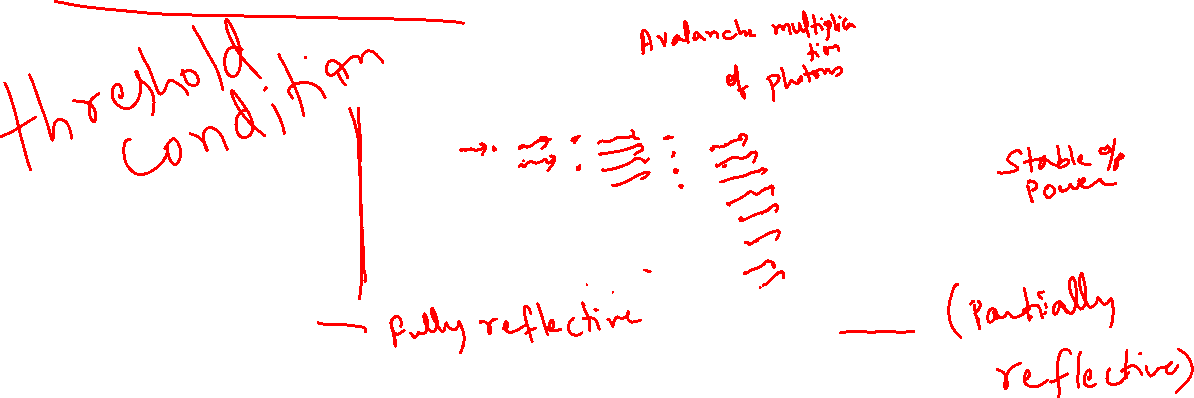 threshold
condition
Avalanche multiplica
tion
of photons
Stable o/p
Power
Fully reflective
(Partially
reflective)